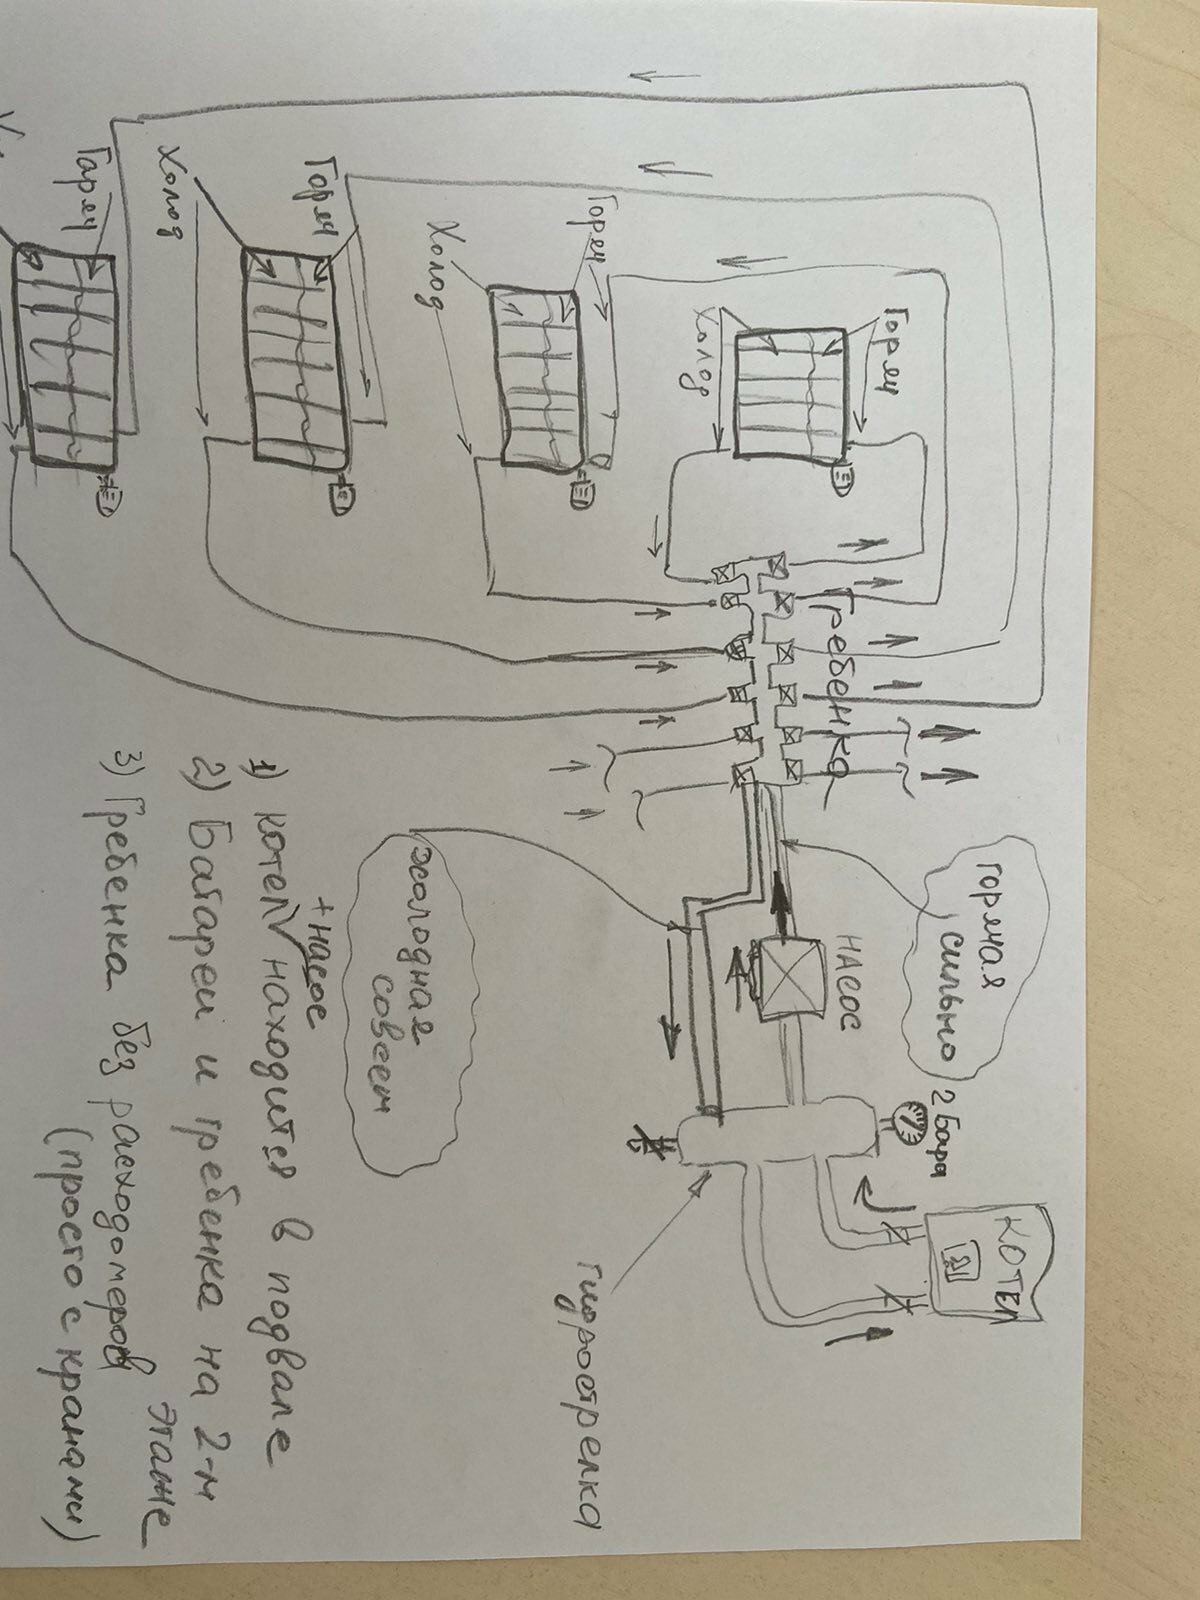 КОТЕЛ
2 Бара
Гидрострелка
НАСОС
горячая
сильно
холодная
совсем
Гребенка
Горяч
Холод
Горяч
Холод
Горяч
Холод
Гаряч
1) котел + насос находится в подвале
2) Батареи и гребенка на 2-м
этаже
3) Гребенка без расходомеров
(просто с кранами)